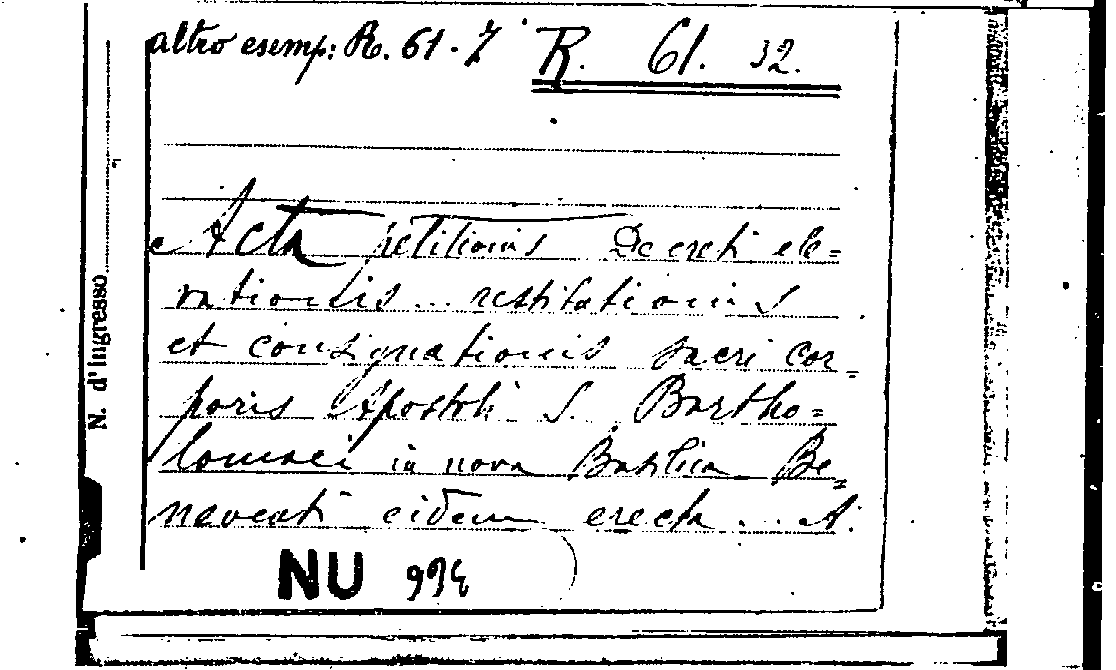 altro esemp: R. 61. 7 R. 61. 32.
N. d'Ingresso
Acta petitionis Decreti ele=
vationis... restitutionis
et consignationis sacri cor=
poris Apostoli S. Bartho=
lomaei in nova Basilica Be=
neventi eidem erecta... A.
NU 994